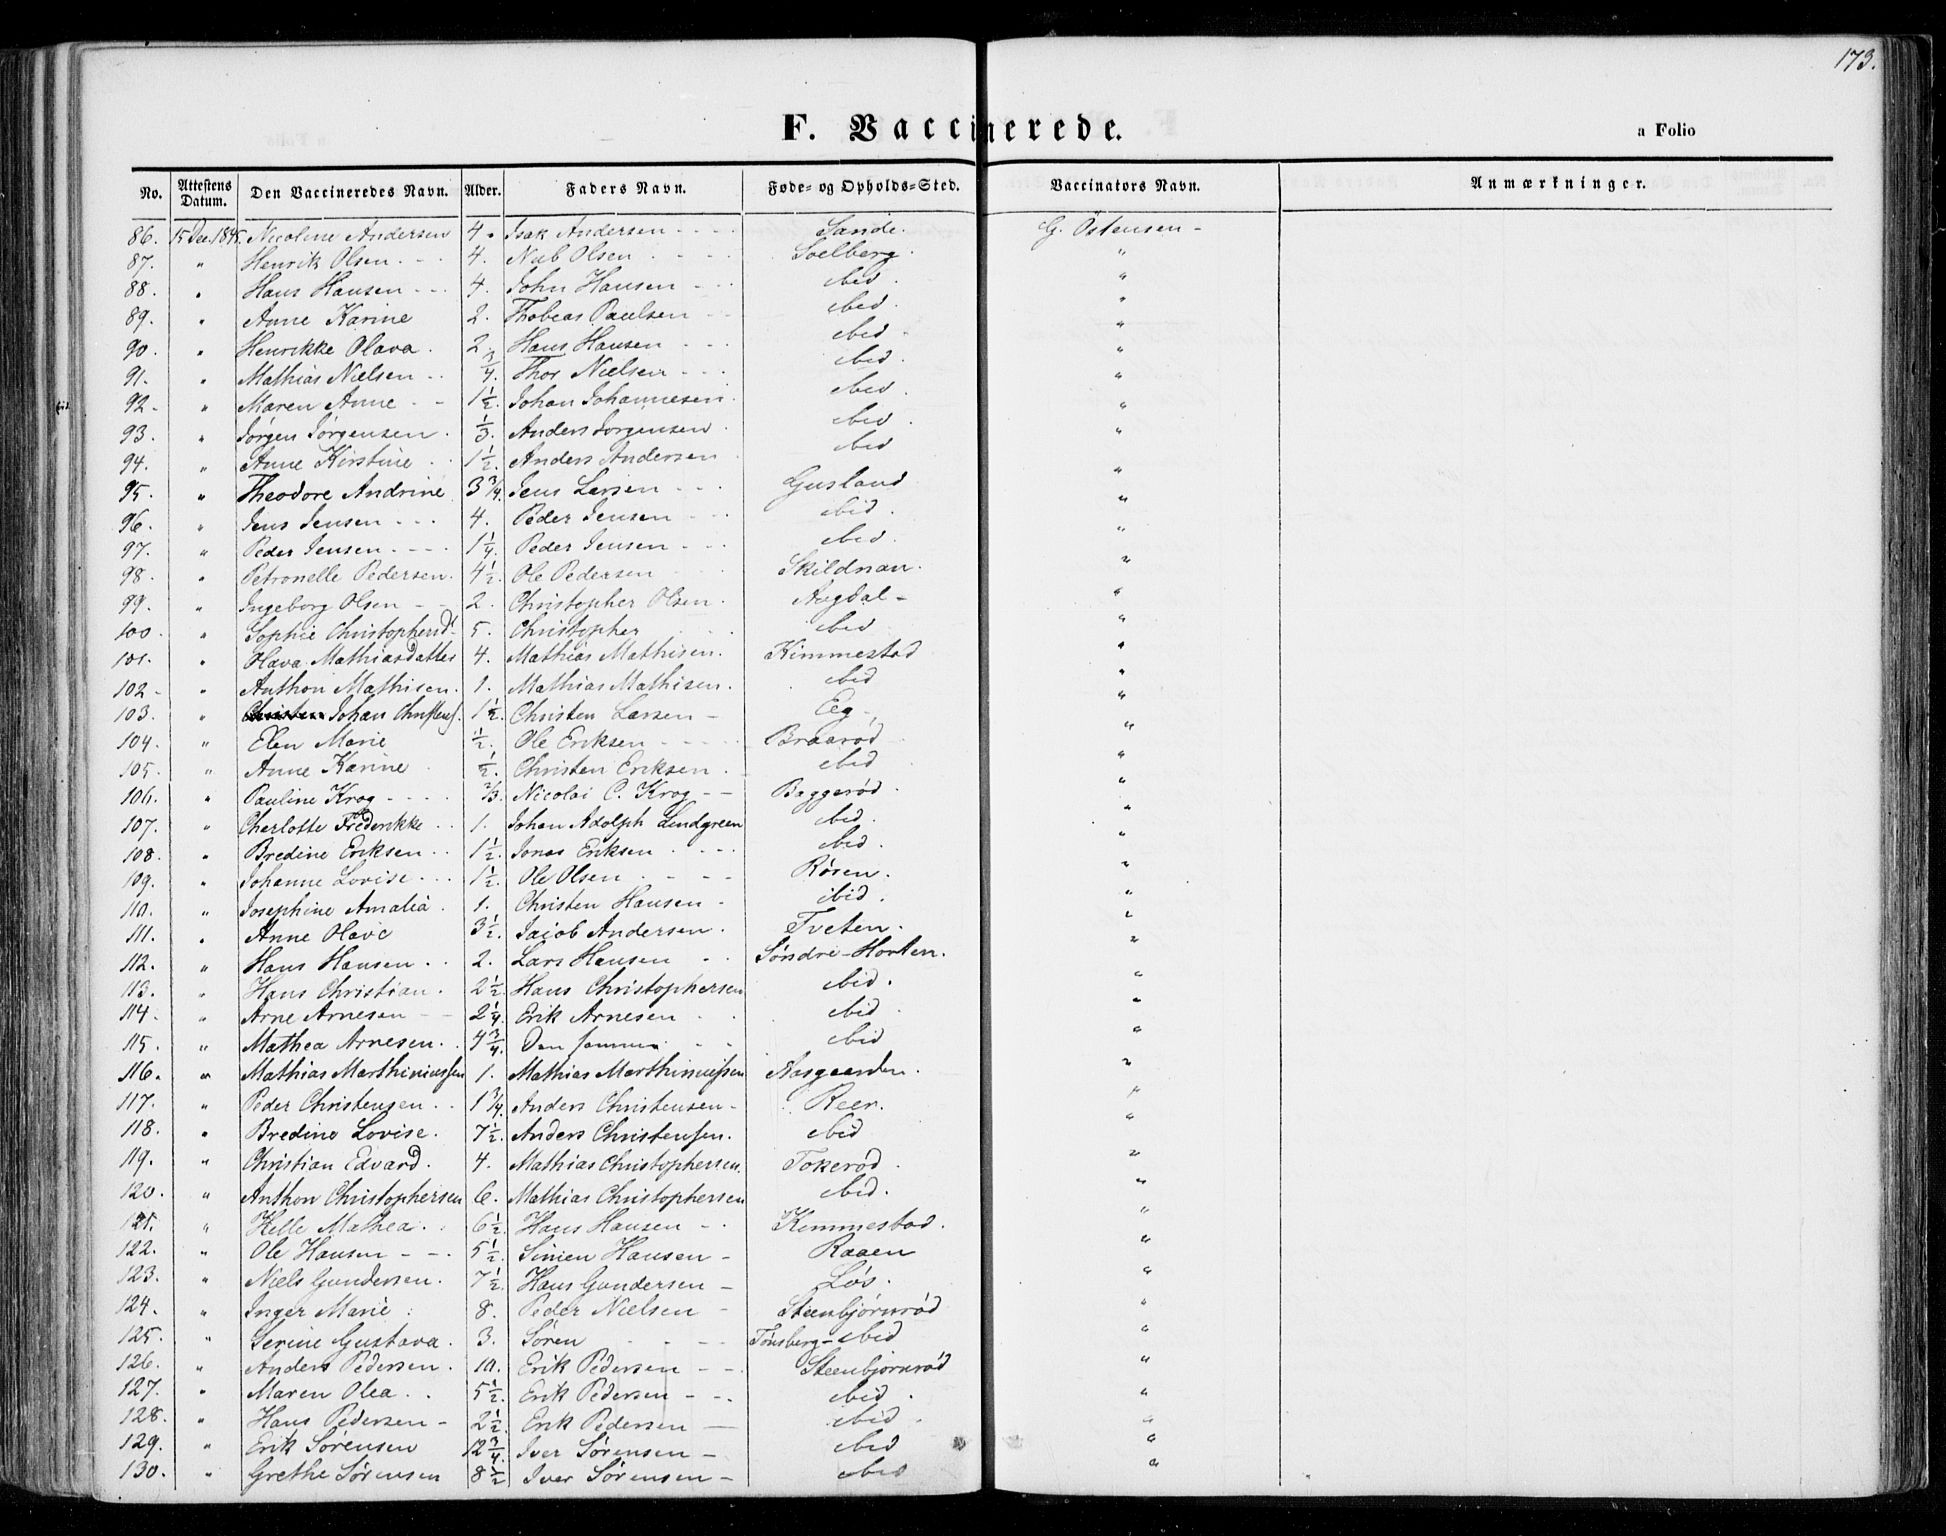 173.
F. Vaccinerede.
a Folio
No. Attestens Datum. Den Vaccineredes Navn. Alder. Faders Navn. Føde- og Opholds-Sted. Vaccinators Navn. Anmærkninger.
86. 15 Dec. 1845. Nicoline Andersen 4. Isak Andersen - - - - Sande. G. Östensen -
87. " Henrik Olsen - - - 4. Olsen - - - - Soelberg. "
88. " Hans Hansen - - - 4. John Hansen - - - ibid. "
89. " Anne Karine 2. Thobias Paulsen - - ibid. "
90. " Henrikke Olava. 2. Hans Hansen - - - ibid. "
91. " Mathias Nielsen - - 3/4. Thor Nielsen - - - ibid. "
92. " Maren Anne - - 1 1/2. Johan Johannesen. ibid. "
93. " Jørgen Jørgensen. 1/3. Anders Jørgensen. ibid. "
94. " Anne Kirstine. 1 1/2. Anders Andersen ibid "
95. " Theodore Andrine 3 3/4. Jens Larsen - - - Gusland "
96. " Jens Jensen - - - 4. Peder Jensen - - - ibid. "
97. " Peder Jensen - - - 1 1/4. Peder Jensen - - - ibid. "
98. " Petronelle Pedersen. 4 1/2. Ole Pedersen Skildnan. "
99. " Ingeborg Olsen - - 2. Christopher Olsen. Augdal - "
100. " Sophie Christophersd. 5. Christopher ibid "
101. " Olava Mathiasdatter 4. Mathias Mathisen. Kimmestad "
102. " Anthon Mathisen. 1. Mathias Mathisen. ibid "
103. " Christen Johan Christens. 1 1/2. Christen Larsen - Eeg - "
104. " Elen Marie 1/2. Ole Eriksen - - - - Braarød "
105. " Anne Karine 1/2. Christen Eriksen. ibid "
106. " Pauline Krog - - - - 2/3. Nicolai C. Krog - - Baggerød. "
107. " Charlotte Frederikke - - 1. Johan Adolph Lindgreen ibid. "
108. " Bredine Eriksen - - 1 1/2. Jonas Eriksen - - - - ibid. "
109. " Johanne Lovise - - - 1 1/2. Ole Olsen - - - - Røsen. "
110. " Josephine Amalia. 1. Christen Hansen - ibid. "
111. " Anne Olave 3 1/2. Jacob Andersen. Tveten. "
112. " Hans Hansen - - 2. Lars Hansen - - Søndre-Horten. "
113. " Hans Christian. 2 1/2. Hans Christophersen ibid. "
114. " Arne Arnesen - - 2 1/4. Erik Arnesen - - ibid. "
115. " Mathea Arnesen. 4 3/4. Den samme - - ibid "
116. " Mathias Marthiniussen 1. Mathias Marthiniussen Aasgaarden. "
117. " Peder Christensen - - 1 3/4. Anders Christensen - Reer. "
118. " Bredine Lovise. 7 1/2. Anders Christensen. ibid "
119. " Christian Edvard. 4. Mathias Christophersen. Tokerød. "
120. " Anthon Christophersen 6. Mathias Christophersen ibid. "
121. " Helle Mathea. 6 1/2. Hans Hansen - - Kimmestad. "
122. " Ole Hansen - - - 5 1/2. Simen Hansen - Raaen "
123. " Niels Gundersen. 7 1/2. Hans Gundersen - Løs. "
124. " Inger Marie 8. Peder Nielsen - Steenbjørnrød "
125. " Serine Gustava. 3. Søren - - - - Tønsberg - ibid "
126. " Anders Pedersen. 10. Erik Pedersen - - - Steenbjørnrød "
127. " Maren Olea. 5 1/2. Erik Pedersen - - - ibid. "
128. " Hans Pedersen - 2 1/2. Erik Pedersen — ibid. "
129. " Erik Sørensen 12 3/4. Iver Sørensen - ibid "
130. " Grethe Sørensen 8 1/2. Iver Sørensen - ibid "